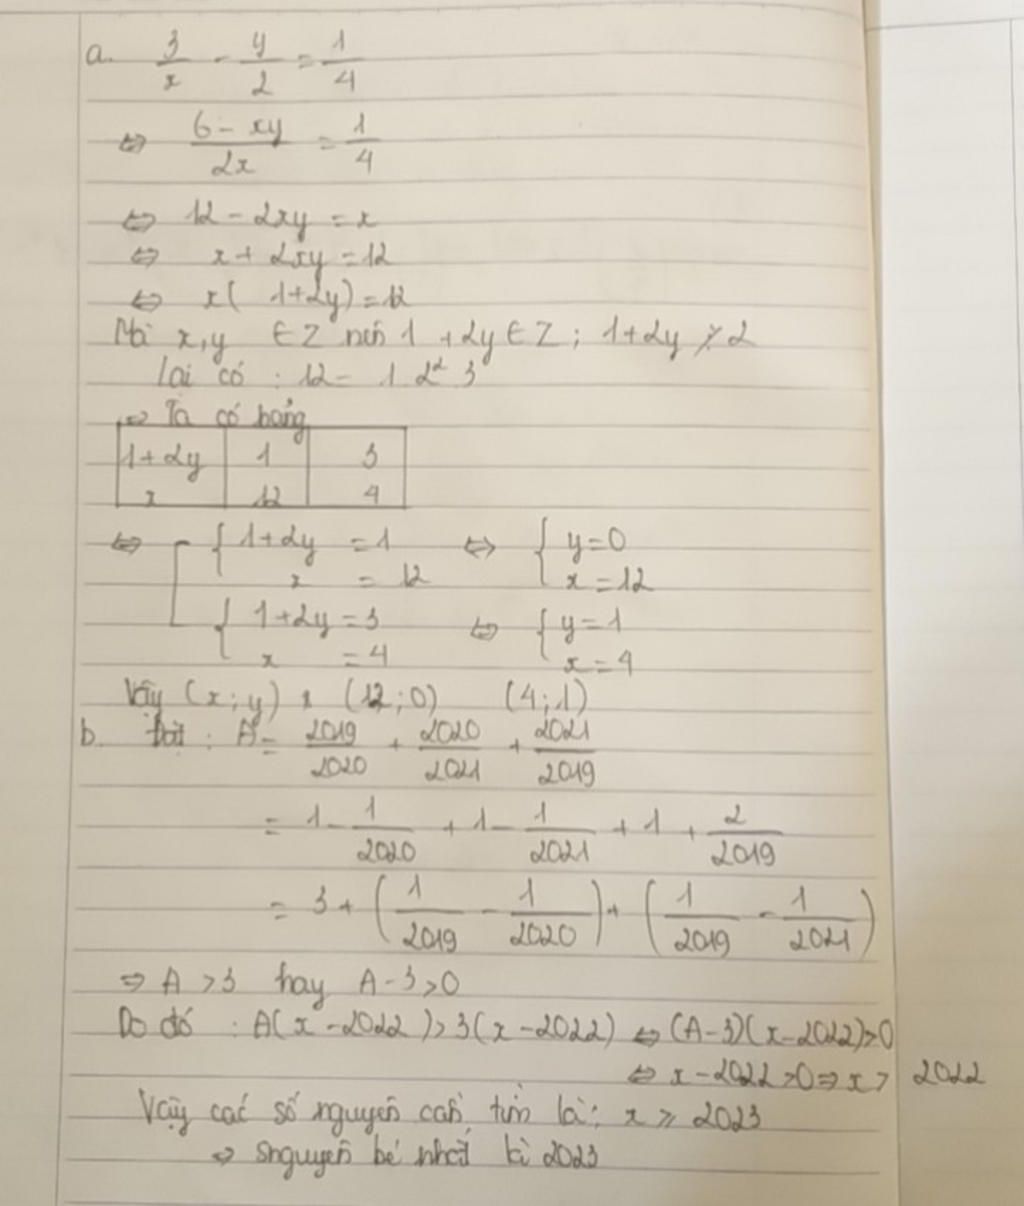 a. 3/x - y/2 = 1/4
⇔ (6 - xy)/2x = 1/4
⇔ 12 - 2xy = x
⇔ x + 2xy = 12
⇔ x( 1+2y) = 12
Mà x,y ∈ Z nên 1 + 2y ∈ Z ; 1+2y ⋮̸ 2
Lại có : 12 = 1 2² 3
⇒ Ta có bảng
1+2y 1 3
x 12 4
⇔ [ { 1+2y = 1 ⇔ { y=0
x = 12 x = 12
{ 1+2y = 3 ⇔ { y=1
x = 4 x = 4
Vậy (x;y) (12;0) (4;1)
b. Đặt : A = 2019/2020 + 2020/2021 + 2021/2019
= 1 - 1/2020 + 1 - 1/2021 + 1 + 2/2019
= 3 + (1/2019 - 1/2020) + (1/2019 - 1/2021)
⇒ A > 3 hay A - 3 > 0
Do đó : A(x - 2022) > 3(x - 2022) ⇔ (A-3)(x-2022)>0
⇔ x - 2022 > 0 ⇒ x > 2022
Vậy các số nguyên cần tìm là: x ⩾ 2023
⇒ snguyên bé nhất là 2023